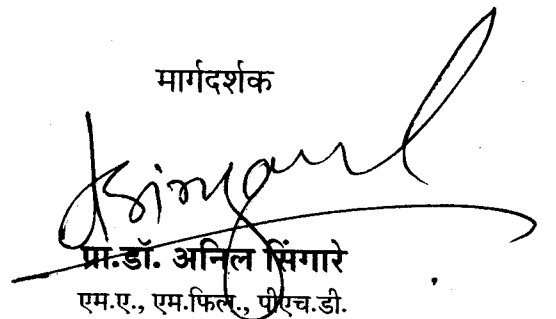 मार्गदर्शक
प्रा.डॉ. अनिल सिंगारे
एम.ए., एम.फिल., पीएच.डी.